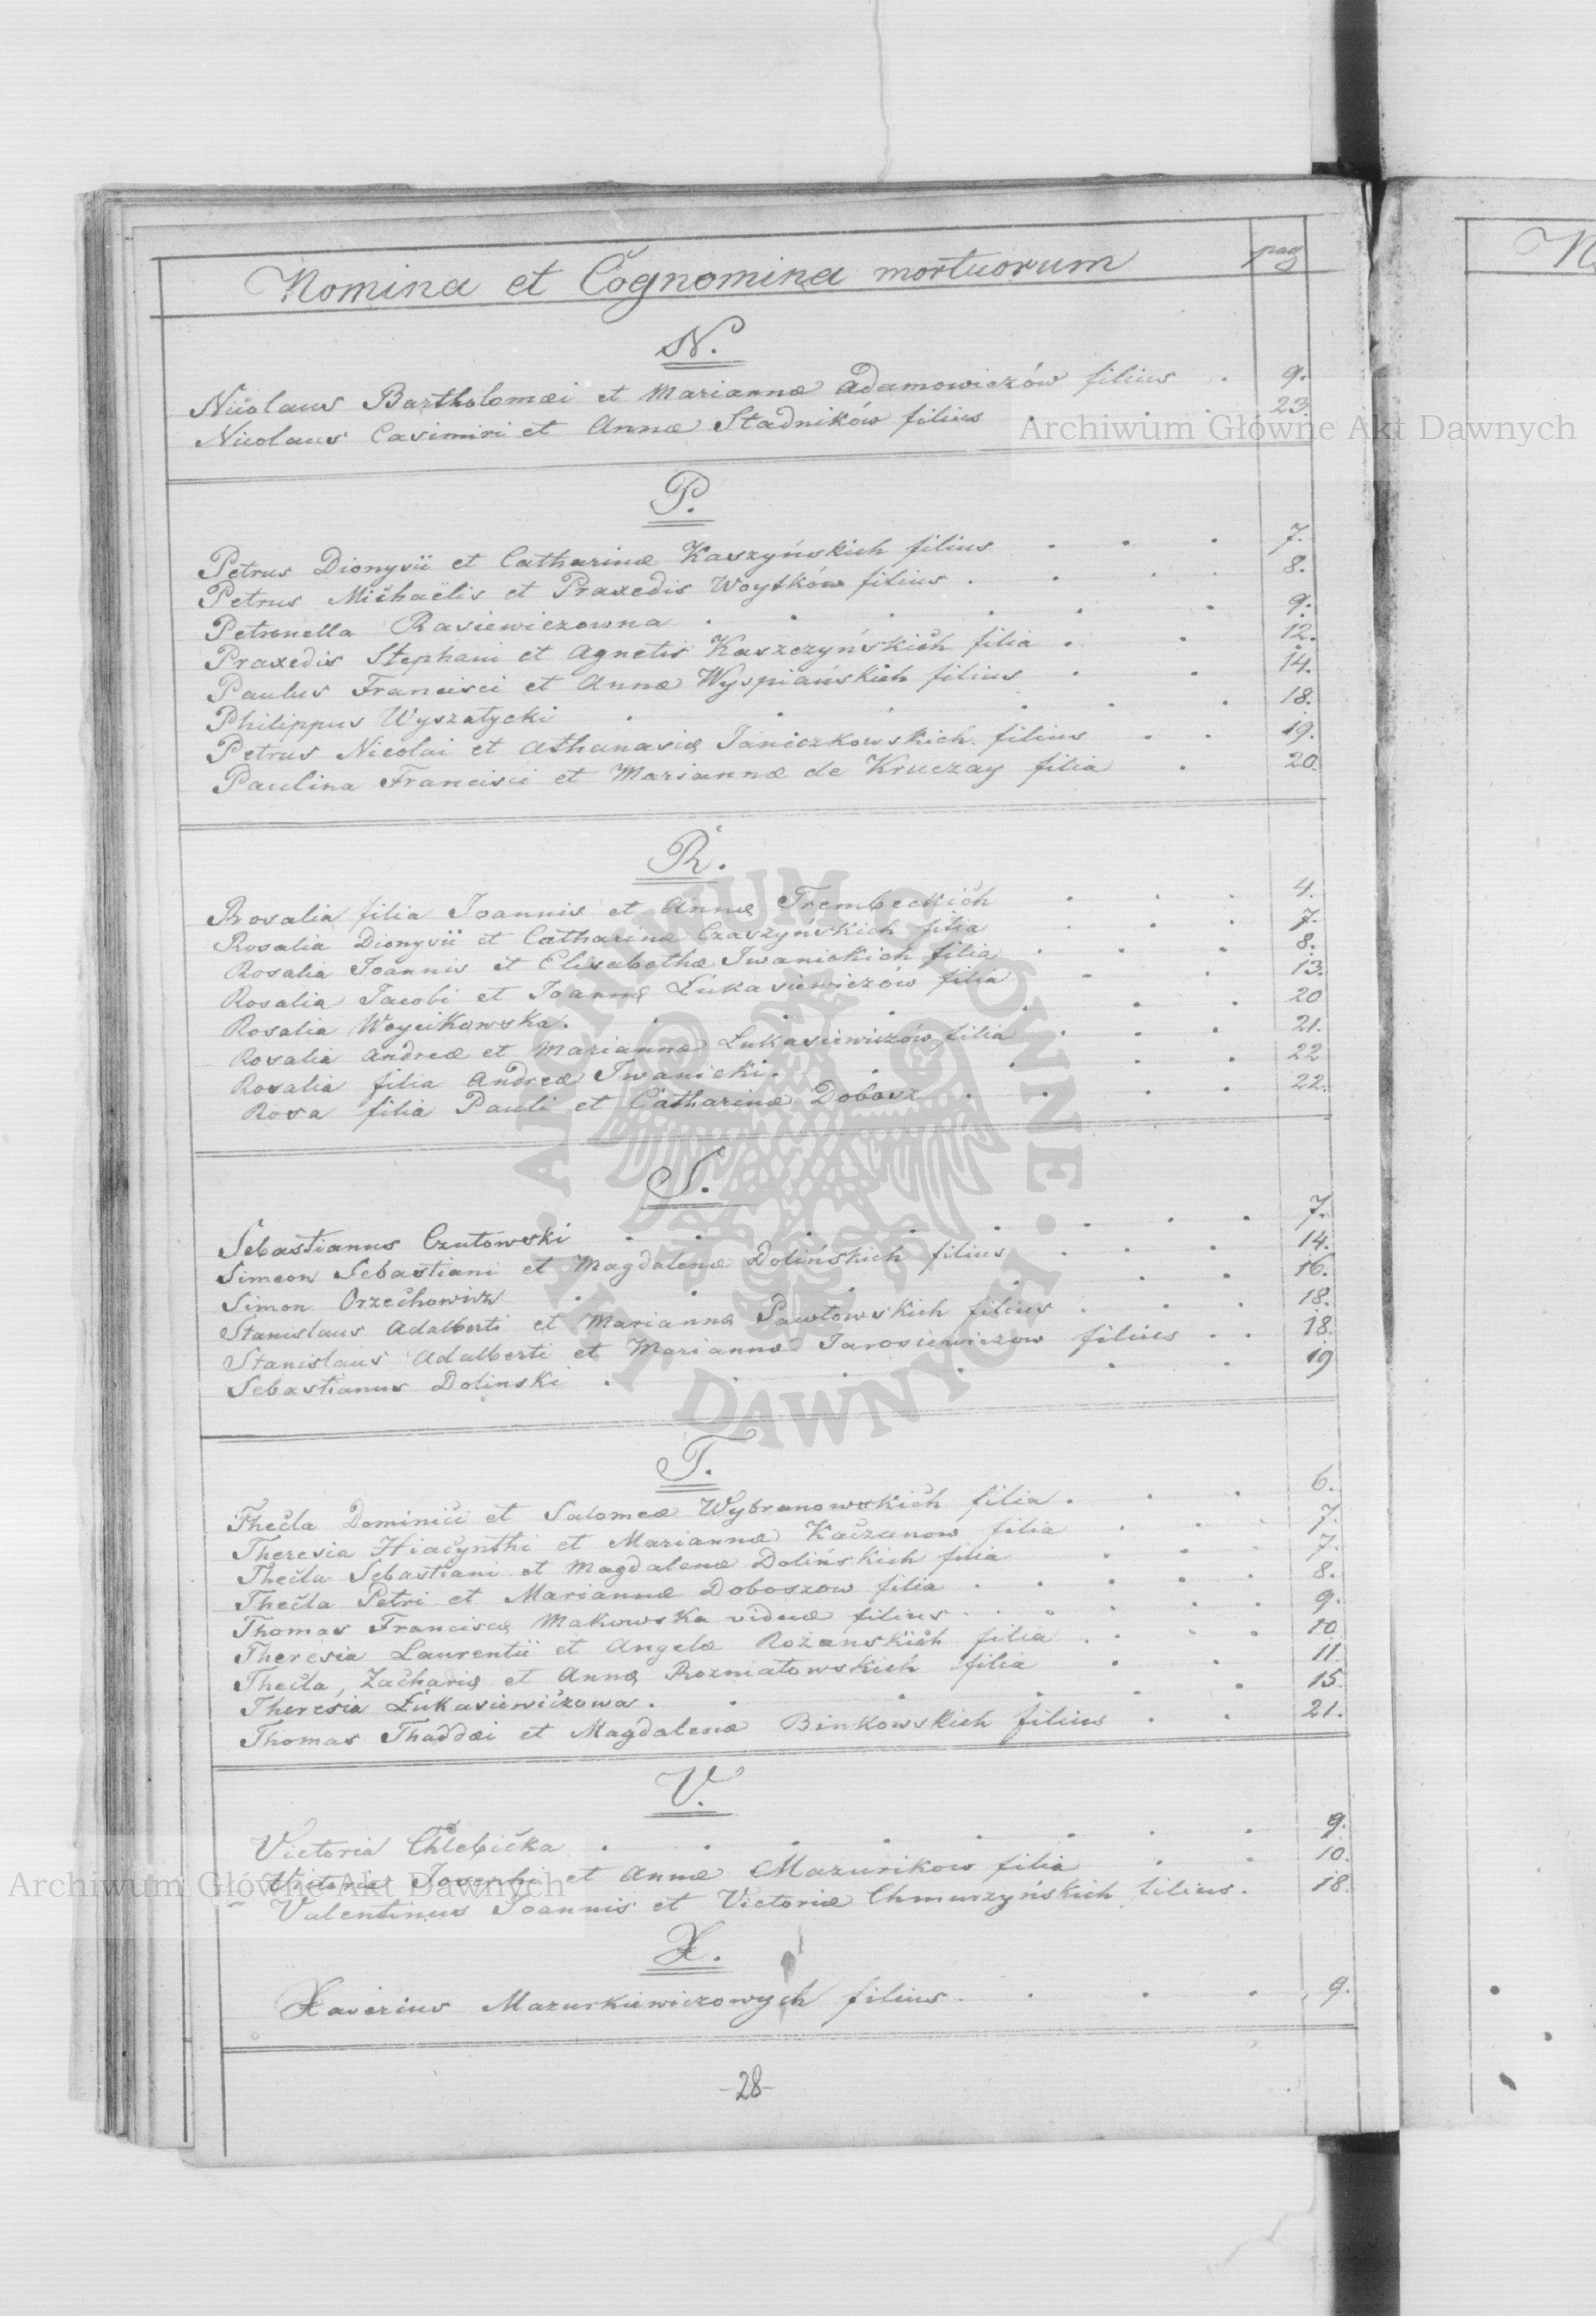 Nomina et Cognomina mortuorum pag
N.
Nicolaus Bartholomæi et Mariannæ Adamowiczów filius . 9.
Nicolaus Casimiri et Annæ Stadników filius . . 23.
Archiwum Główne Akt Dawnych
P.
Petrus Dionysii et Catharinæ Kaszyńskich filius . . . 7.
Petrus Michaëlis et Praxedis Woytków filius . . . . 8.
Petronella Rasiewiczowna . . . . . . 9.
Praxedis Stephani et Agnetis Kaszczyńskich filia . . 12.
Paulus Francisci et Annæ Wyspiańskich filius . . 14.
Philippus Wyszatycki . . . . . . 18.
Petrus Nicolai et Athanasię Janiczkowskich filius . . 19.
Paulina Francisci et Mariannæ de Kruczay filia . 20
R.
Rosalia filia Joannis et Annę Trembeckich . . . 4.
Rosalia Dionysii et Catharinæ Czaszyńskich filia . . . 7.
Rosalia Joannis et Elisabethæ Iwanickich filia . . . 8.
Rosalia Jacobi et Joannę Łukasiewiczów filia . . 13.
Rosalia Woycikowska . . . . . . . 20
Rosalia Andreæ et Mariannæ Lukasiewiczów filia . . . 21.
Rosalia filia Andreæ Iwanicki . . . . . 22
Rosa filia Pauli et Catharinæ Dobosz . . . . 22.
S.
Sebastianus Czutowski . . . . . . . . . 7.
Simeon Sebastiani et Magdalenæ Dolińskich filius . . . 14.
Simon Orzechowicz . . . . . . 16.
Stanislaus Adalberti et Mariannę Pawłowskich filius . . . 18.
Stanislaus Adalberti et Mariannæ Jarosiewiczow filius . . 18.
Sebastianus Dolinski . . . . . . 19
T.
Thecla Dominici et Salomeæ Wybranowskich filia . . . 6.
Theresia Hiacynthi et Mariannæ Kaczanow filia . . . 7.
Thecla Sebastiani et Magdalenæ Dolińskich filia . . . 7.
Thecla Petri et Mariannæ Doboszow filia . . . . . 8.
Thomas Franciscę Makowska viduæ filius . . . . . 9.
Theresia Laurentii et Angelæ Rożanskich filia . . . . 10
Thecla, Zacharię et Annę Rozniatowskich filia . . 11.
Theresia Łukasiewiczowa . . . . . . 15.
Thomas Thaddæi et Magdalenæ Binkowskich filius . . 21.
V.
Victoria Chlebicka . . . . . . . . 9.
Victoria Josephi et Annæ Mazurikow filia . . 10.
Valentinus Joannis et Victoriæ Chmurzyńskich filius . 18.
Archiwum Główne Akt Dawnych
X.
Xaverius Mazurkiewiczowych filius . . . . 9.
-28-
ARCHIWUM GŁÓWNE · AKT DAWNYCH ·